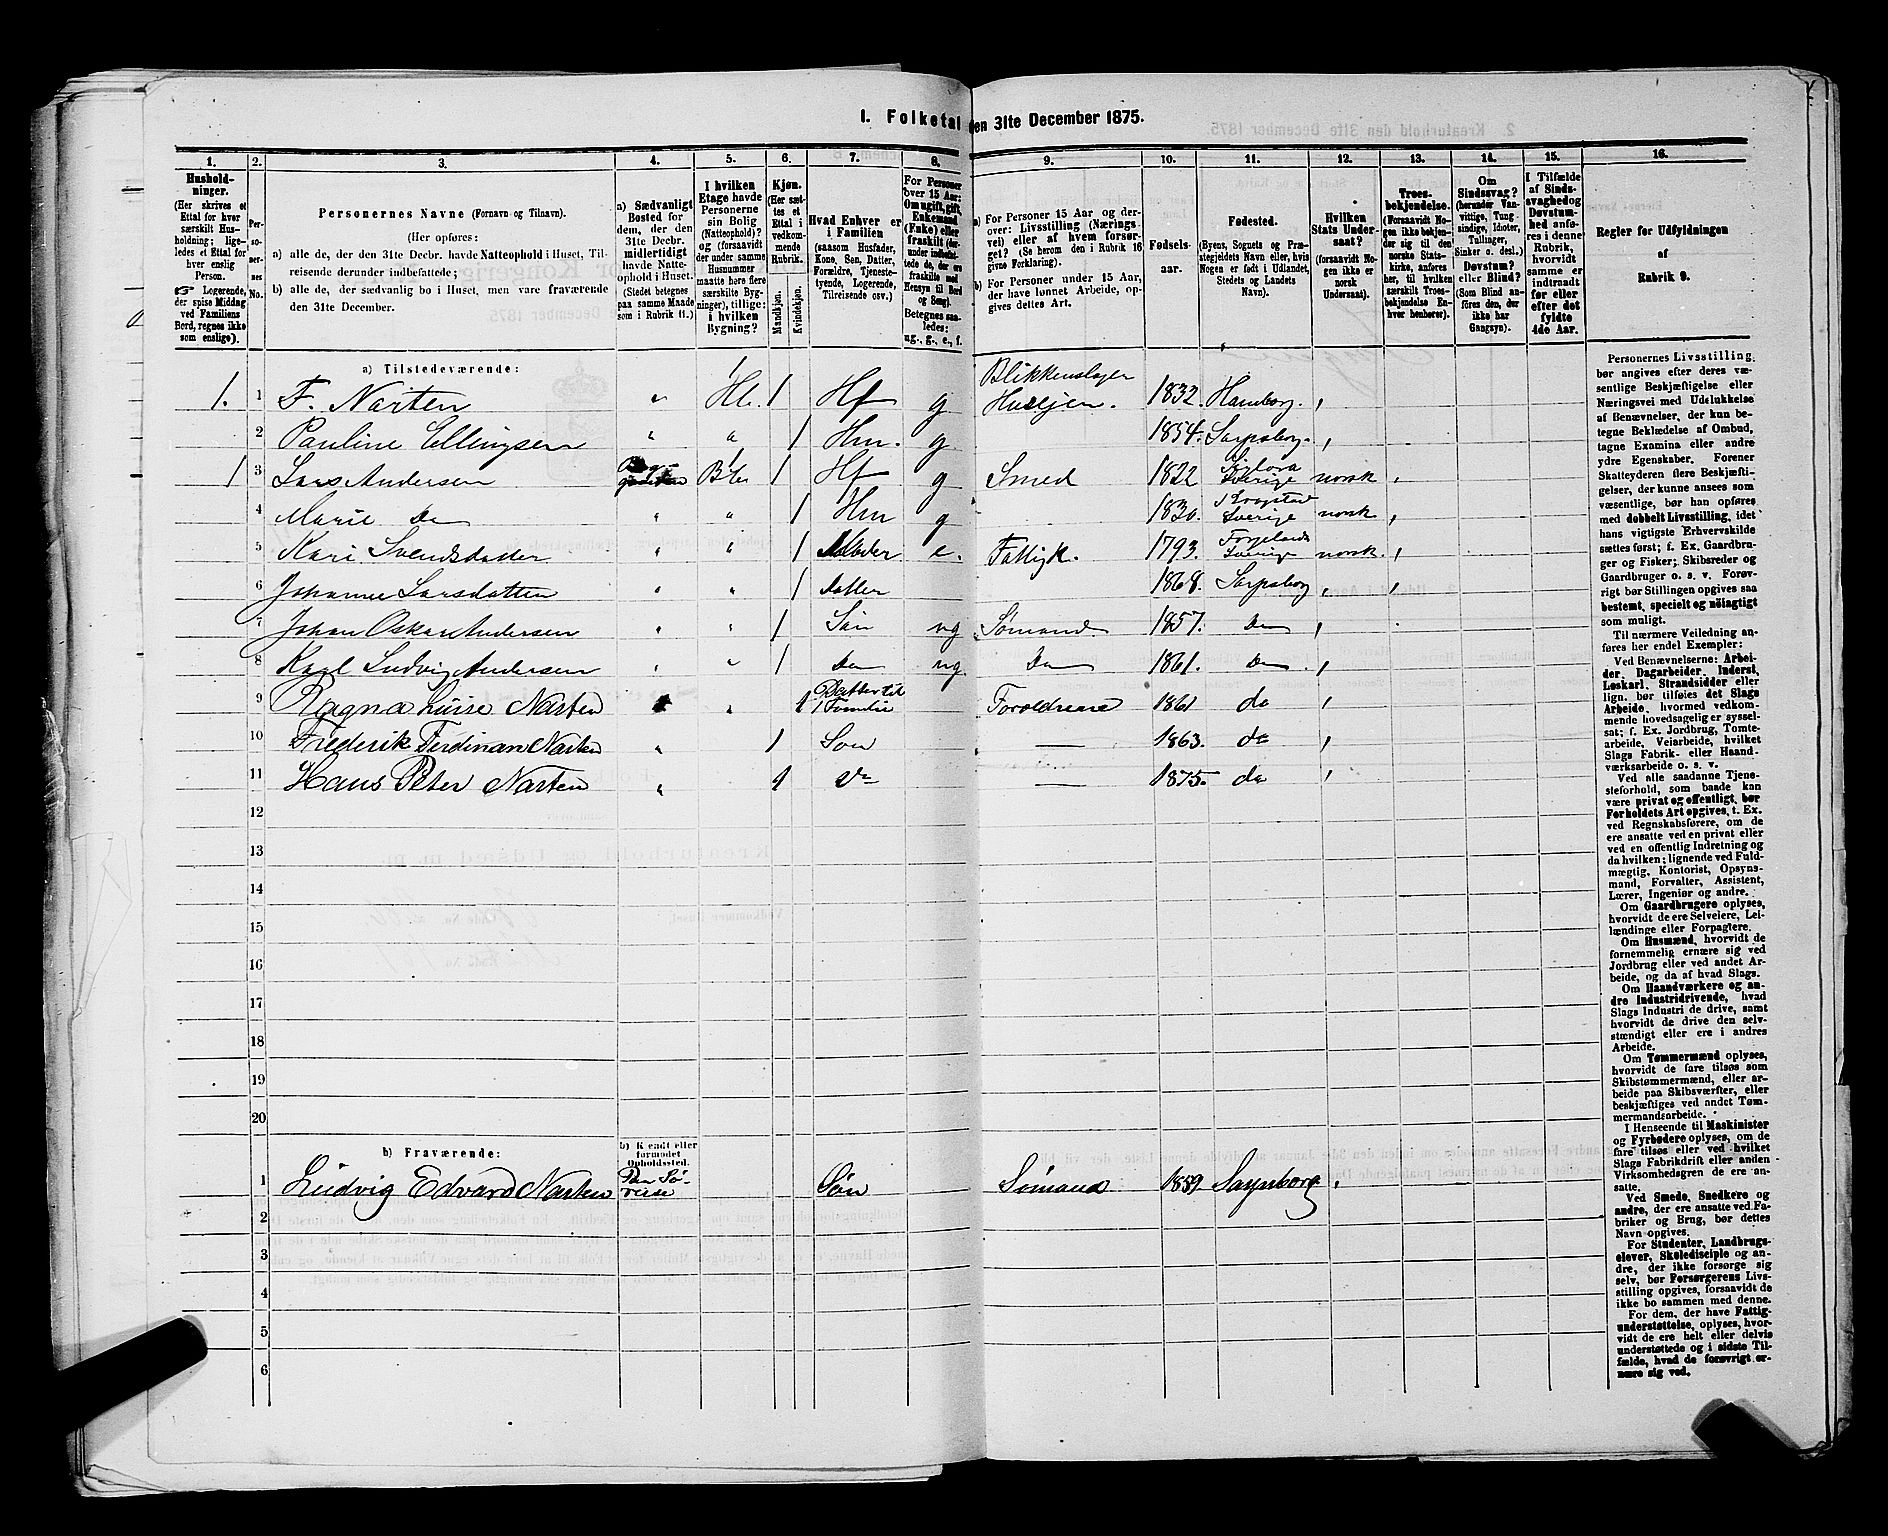 I. Folketal den 31te December 1875.
1. 2. 3. 4. 5. 6. 7. 8. 9. 10. 11. 12. 13. 14. 15. 16.
Hushold-
ninger.
(Her skrives et
Ettal for hver
særskilt Hus-
holdning; lige-
ledes et Ettal for
hver enslig
Person.
☞ Logerende,
der spise Middag
ved Familiens
Bord, regnes ikke
som enslige).
Per-
so-
ner-
nes
No.
Personernes Navne (Fornavn og Tilnavn).
(Her opføres:
a) alle de, der den 31te Decbr. havde Natteophold i Huset, Til-
reisende derunder indbefattede;
b) alle de, der sædvanlig bo i Huset, men vare fraværende
den 31te December.
a) Sædvanligt
Bosted for
dem, der den
31te Decbr.
midlertidigt
havde Natte-
ophold i Huset.
(Stedet betegnes
paa samme Maade
som i Rubrik 11.)
I hvilken
Etage havde
Personerne
sin Bolig
(Natteophold)?
og (forsaavidt
der under samme
Husnummer
maatte høre flere
særskilte Byg-
ninger), tillige:
i hvilken
Bygning?
Kjøn.
(Her sæt-
tes et
Ettal i
vedkom-
mende
Rubrik.
Mandkjøn.
Kvindekjøn.
Hvad Enhver er
i Familien
(saasom Husfader,
Kone, Søn, Datter,
Forældre, Tjeneste-
tyende, Logerende,
Tilreisende osv.)
For Personer
over 15 Aar:
Om ugift, gift,
Enkemand
(Enke) eller
fraskilt (der-
under indbefat-
tede de, der ere
fraskilte med
Hensyn til Bord
og Seng).
Betegnes saa-
ledes:
ug., g., e., f.
a) For Personer 15 Aar og der-
over: Livsstilling (Nærings-
vei) eller af hvem forsør-
get? (Se herom den i Rubrik 16
givne Forklaring).
b) For Personer under 15 Aar,
der have lønnet Arbeide, op-
gives dettes Art.
Fødsels-
aar.
Fødested.
(Byens, Sognets og Præ-
stegjeldets Navn eller, hvis
Nogen er født i Udlandet,
Stedets og Landets
Navn).
Hvilken
Stats Under-
saat?
(forsaavidt No-
gen ikke er
norsk
Undersaat).
Troes-
bekjendelse.
(Forsaavidt No-
gen ikke bekjen-
der sig til den
norske Stats-
kirke, anføres
her, til hvilken
særskilt Troes-
bekjendelse En-
hver henhører).
Om
Sindssvag?
(herunder Van-
vittige, Tung-
sindige, Idioter,
Tullinger,
Sinker o. desl.)
Døvstum?
eller Blind?
(Som Blind an-
føres den, der
ikke har
Gangsyn).
I Tilfælde
af Sinds-
svaghed og
Døvstum-
hed anfø-
res i denne
Rubrik,
hvorvidt
samme er
indtraadt
før eller
efter det
fyldte
4de Aar.
Regler for Udfyldningen
af
Rubrik 9.
a) Tilstedeværende:
1. 1 F. Narten " 1 Hl. 1 Hf g Blikkenslager Husejer. 1832. Hamborg. ,
2 Pauline Ellingsen " " 1 Hm. g 1854. Sarpsborg. ,
1 3 Lars Andersen 1 Bl. 1 Hf g Smed 1822 Sverige norsk ,
4 Marie Do " " 1 Hm g 1830. Sverige norsk ,
5 Kari Svendsdatter " " 1 e. Fattigk. 1793. Sverige norsk. ,
6 Johanne Larsdatter " " 1 datter 1868. Sarpsborg , ,
7 Johan Oskar Andersen " " 1 Søn ug Sømand 1857. Do ,
8 Karl Ludvig Andersen " " 1 Do ug Do 1861. Do. ,
9 Ragna Luise Narten " 1 Datter til 1 Familie Foreldrene 1861 do ,
10 Frederik Ferdinan Narten " 1 Søn — 1863. do ,
11 Hans Peter Narten " 1 Do — 1875. do ,
12
13
14
15
16
17
18
19
20
b) Fraværende:
b) Kjendt eller
formodet
Opholdssted.
1 Ludvig Edvard Narten Paa Sø-reise Søn Sømand 1859 Sarpsborg ,
2
3
4
5
6
Personernes Livsstilling
bør angives efter deres væ-
sentlige Beskjæftigelse eller
Næringsvei med Udelukkelse
af Benævnelser, der kun be-
tegne Beklædelse af Ombud,
tagne Examina eller andre
ydre Egenskaber. Forener
Skatteyderen flere Beskjæfti-
gelser, der kunne ansees som
væsentlige, bør han opføres
med dobbelt Livsstilling, idet
hans vigtigste Erhvervskilde
sættes først; f. Ex. Gaardbru-
ger og Fisker; Skibsreder og
Gaardbruger o. s. v. Forøv-
rigt bør Stillingen opgives saa
bestemt, specielt og nöiagtigt
som muligt.
Til nærmere Veiledning an-
føres her endel Exempler:
Ved Benævnelserne: Arbei-
der, Dagarbeider, Inderst,
Løskarl, Strandsidder eller
lign. bør tilføies det Slags
Arbeide, hvormed vedkom-
mende hovedsagelig er syssel-
sat; f. Ex. Jordbrug, Tomte-
arbeide, Veiarbeide, hvilket
Slags Fabrik- eller Haand-
værksarbeide o. s. v.
Ved alle saadanne Tjene-
steforhold, som baade kan
være privat og offentligt, bør
Forholdets Art opgives, t. Ex.
ved Regnskabsførere, om de
ere ansatte ved en privat eller
ved en offentlig Indretning og
da hvilken; lignende ved Fuld-
mægtig, Kontorist, Opsyns-
mand, Forvalter, Assistent,
Lærer, Ingeniør og andre.
Om Gaardbrugere oplyses,
hvorvidt de ere Selveiere, Lei-
lændinge eller Forpagtere.
Om Husmænd, hvorvidt de
fornemmelig ernære sig ved
Jordbrug eller ved andet Ar-
beide, og da af hvad Slags.
Om Haandværkere og an-
dre Industridrivende, hvad
Slags Industri de drive, samt
hvorvidt de drive den selv-
stændigt eller ere i andres
Arbeide.
Om Tømmermænd oplyses,
hvorvidt de fare tilsøs som
Skibstømmermænd, eller ar-
beide paa Skibsværfter, eller
beskjæftiges ved andet Tøm-
mermandsarbeide.
I Henseende til Maskinister
og Fyrbødere oplyses, om de
fare tilsøs eller ved hvilket
Slags Fabrikdrift eller anden
Virksomhedsgren de ere an-
satte.
Ved Smede, Snedkere og
andre, der ere ansatte ved Fa-
briker og Brug, bør dettes
Navn opgives.
For Studenter, Landbrugs-
elever, Skoledisciple og an-
dre, der ikke forsørge sig
selv, bør Forsørgerens Livs-
stilling opgives, forsaavidt de
ikke bo sammen med denne.
For dem, der have Fattig-
understøttelse, oplyses, hvor-
vidt de ere helt eller delvis
understøttede og i sidste Til-
fælde, hvad de forøvrigt er-
nære sig ved.